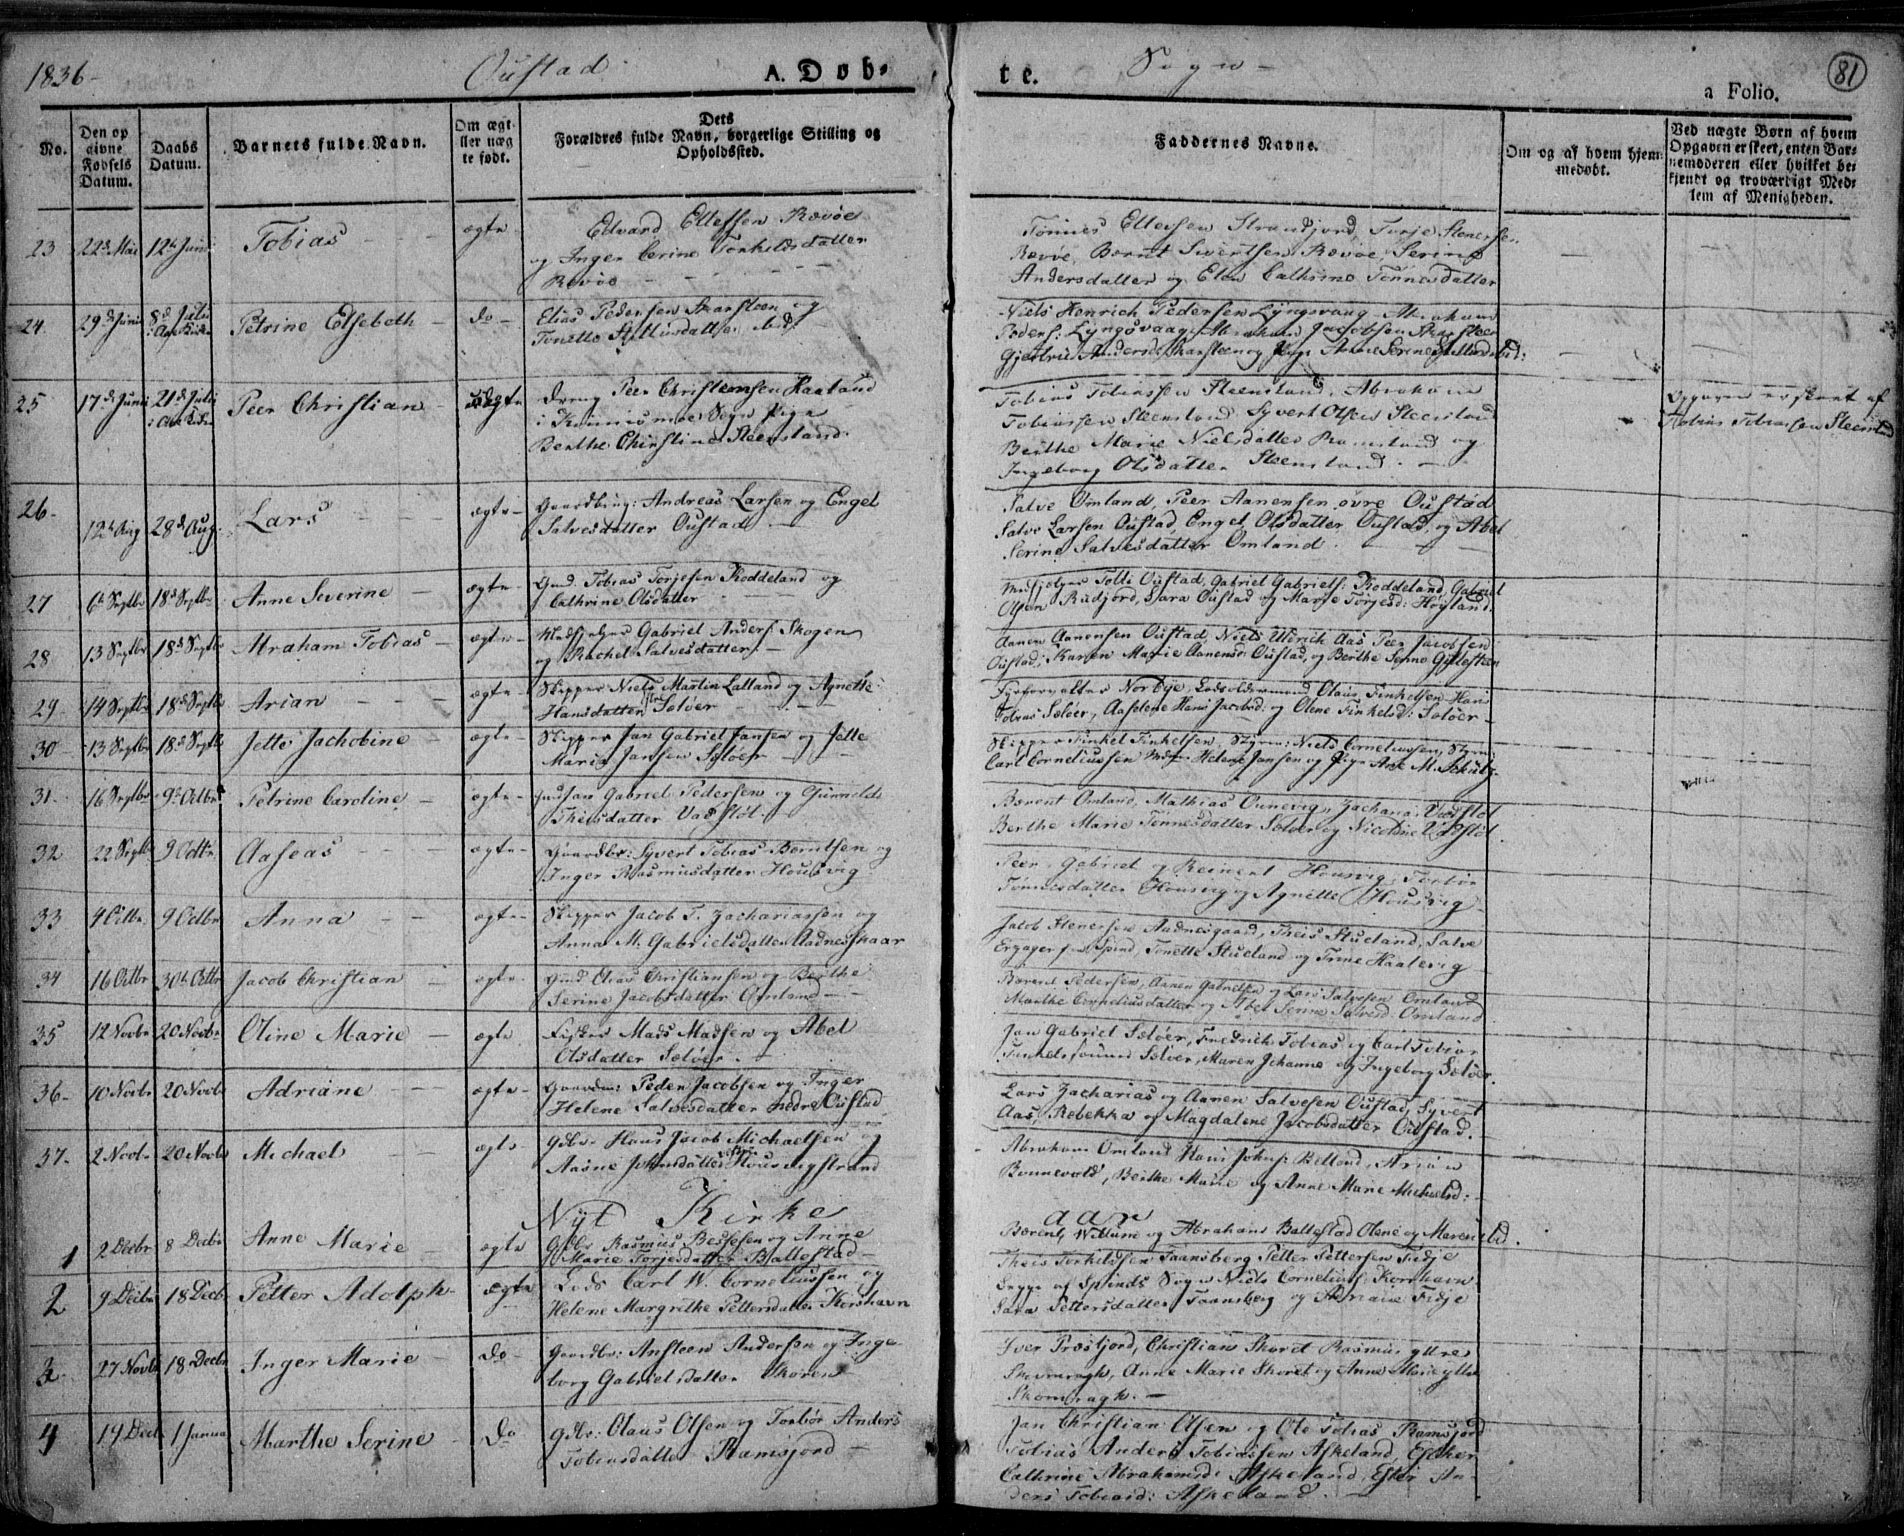 1836- Oustad A. Døb- te. Sogn - 81
a Folio.
No. Den op givne Fødsels Datum. Daabs Datum. Barnets fulde Navn. Om ægte eller uægte født. Dets Forældres fulde Navn, borgerlige Stilling og Opholdssted. Faddernes Navne. Om og af hvem hjemmedøbt. Ved uægte Børn af hvem Opgaven er skeet, enten Barnemoderen eller hvilket bekjendt og troværdigt Medlem af Menigheden.
23 22d Mai 12te Juni Tobias - - ægte Edvard Ellefsen Rævøe
og Inger Cerine Torkildsdatter
Rævøe
Tønnes Ellevsen Strandjord, Torje Stenersen
Rævøe, Bernt Sivertsen Rævøe, Serine
Andersdatter og Elen Cathrine Tønnesdatter
24. 29d Juni 8d Juli Petrine Elsebeth - do - Elias Pedersen Skarsteen og
Tonette Attlusdatter ibid.
Niels Henrich Pedersen Lyngsvaag, Abraham
Peders: Lyngsvaag, Abraham Jacobsen Skarsteen
25 17d Juni 21d Juli Peer Christian - uægte Dreng Peer Christensen Haaland
i Sogn Pige
Berthe Christine Steensland.
Tobias Tobiassen Steensland, Abraham
Tobiassen Steensland, Syvert Olsen Steensland
Berthe Marie Nielsdatter og
Ingeborg Olsdatter Steensland. -
Opgaven er skeet af
Tobias Tobiassen Steensland
26- 12te Aug 28d Aug. Lars - - ægte - Gaardbrug: Andreas Larsen og Engel
Salvesdatter Oustad -
Salve Omland, Peer Aanensen øvre Oustad
Salve Larsen Oustad, Engel Olsdatter Oustad, og Abel
Serine Salvesdatter Omland.
27 6te Septbr 18d Septbr Anne Severine - ægte - Gmd. Tobias Torjesen Roddeland og
Cathrine Olsdatter
Tolli Oustad, Gabriel Gabriels: Roddeland, Gabriel
Olsen Rudjord, Sara Oustad og Marie Torjesd: Høyland.
28 13 Septbr 18d Septbr Abraham Tobias - ægte - Gabriel Anders: Skogen
og Rachel Salvesdatter. -
Aanen Aanensen Oustad, Niels Ulrich Aas, Peer Jacobsen
Oustad, Karen Marie Aanensd: Oustad, og Berthe Serine Gjellesteen
29 14 Septbr 18d Septbr Arian - - ægte - Skipper Niels Martin Lalland og Agnette
Hansdatter Sæløer
Fyrforvalter Norbye, Lodsoldermand Olaus Finkelsen, Hans
Tobias Sæløer, Aaselene Hans Jacobsd: og Olene Finkelsd: Sæløer -
30 13 Septbr 18d Septbr Jette Jachobine - ægte - Skipper Jan Gabriel Jansen og Jette
Maria Jansen Sæløer -
Skipper Finkel Finkelsen, Styrm: Niels Corneliussen, Styrm:
Carl Corneliussen Mad: Helene Jansen og Pige Ane M. Schultz
31- 16 Septbr 9d Octbr Petrine Caroline - ægte - Jan Gabriel Pedersen og Gunnild
Theisdatter Vadsløt. -
Bærent Omland, Mathias Ounevig, Zacharias Vadsløt
Berthe Marie Tønnesdatter Sæløer og Nicoline Vadsløt.
32 22 Septbr 9 Octbr Aaseas - - ægte - Gaardbr: Syvert Tobias Berntsen og
Inger Rasmusdatter Housvig
Peer, Gabriel og Reinert Housvig, Torbor
Tønnesdatter Housvig og Agnette Housvig
33 4 Octbr 9 Octbr Anna - - ægte - Skipper Jacob T. Zachariassen og
Anna M. Gabrielsdatter Aadneskaar
Jacob Stenersen Aadnesgaard, Theis Stueland, Salve
Spind, Tonette Stueland og Trine Haalevig -
34 16 Octbr 30te Octbr Jacob Christian - ægte - Gmd Elias Christiansen og Berthe
Serine Jacobsdatter Omland -
Bærent Pedersen, Aanen Gabrielsen og Lars Salvesen Omland
Marthe Corneliusdatter og Abel Serine Salvesd Omland
35 12 Novbr 20 Novbr Oline Marie - ægte. Fisker Mads Madsen og Abel
Olsdatter Sæløer. -
Jan Gabriel Sæløer, Fredrich Tobias og Carl Tobias
Finkelssønner Sæløer, Maren Johanne og Ingeborg Sæløer.
36- 10 Novbr 20 Novbr Adriane - - ægte - Gaardm: Peder Jacobsen og Inger
Helene Salvesdatter nedre Oustad
Lars Zacharias og Aanen Salvesen Oustad, Syvert
Aas, Rebekka og Magdalene Jacobsdatter Oustad.
37- 2 Novbr 20 Novbr Michael - - ægte Gdbr. Hans Jacob Michaelsen og
Aasne Johnsdatter Housvigstrand
Abraham Omland, Hans Johns: Belland, Arian
Bonnevold, Berthe Marie og Anne Marie Michelsd: -
Nyt Kirke aar
1 2 Decbr 8 Decbr Anne Marie - ægte Gdbr Rasmus Bessesen og Anne
Marie Torjesdatter Ballestad -
Bærent Witlund og Abraham Ballestad, Olene og Maren ibid.
2 9 Decbr 18 Decbr Petter Adolph - ægte Lods Carl W. Corneliussen og
Helene Margrethe Pettersdatter Korshavn
Theis Torkildsen Taansberg, Petter Pettersen Fidje
Begge af Spinds Sogn, Niels Cornelius: Korshavn
Sara Pettersdatter Taansberg og Adriane Fidje
3- 27 Novbr 18 Decbr Inger Marie - Do - Gaardbr: Ansteen Andersen og Inge
borg Gabrielsdatter Skoren -
Iver Præstjord, Christian Skoret, Rasmus yttre
Skomragh, Anne Marie Skoret og Anne Marie yttre
Skomragh. -
4 19 Decbr 1 Januar Marthe Serine - Do Gdbr: Olaus Olsen og Torbor Anders
Tobiasdatter Ramsjord -
Jan Christian Olsen og Ole Tobias Ramsjord
Tobias Anders Tobiassen Askeland, Esther
Cathrine Abrahamsd: Askeland, Ester An-
ders Tobiasd: Askeland. -